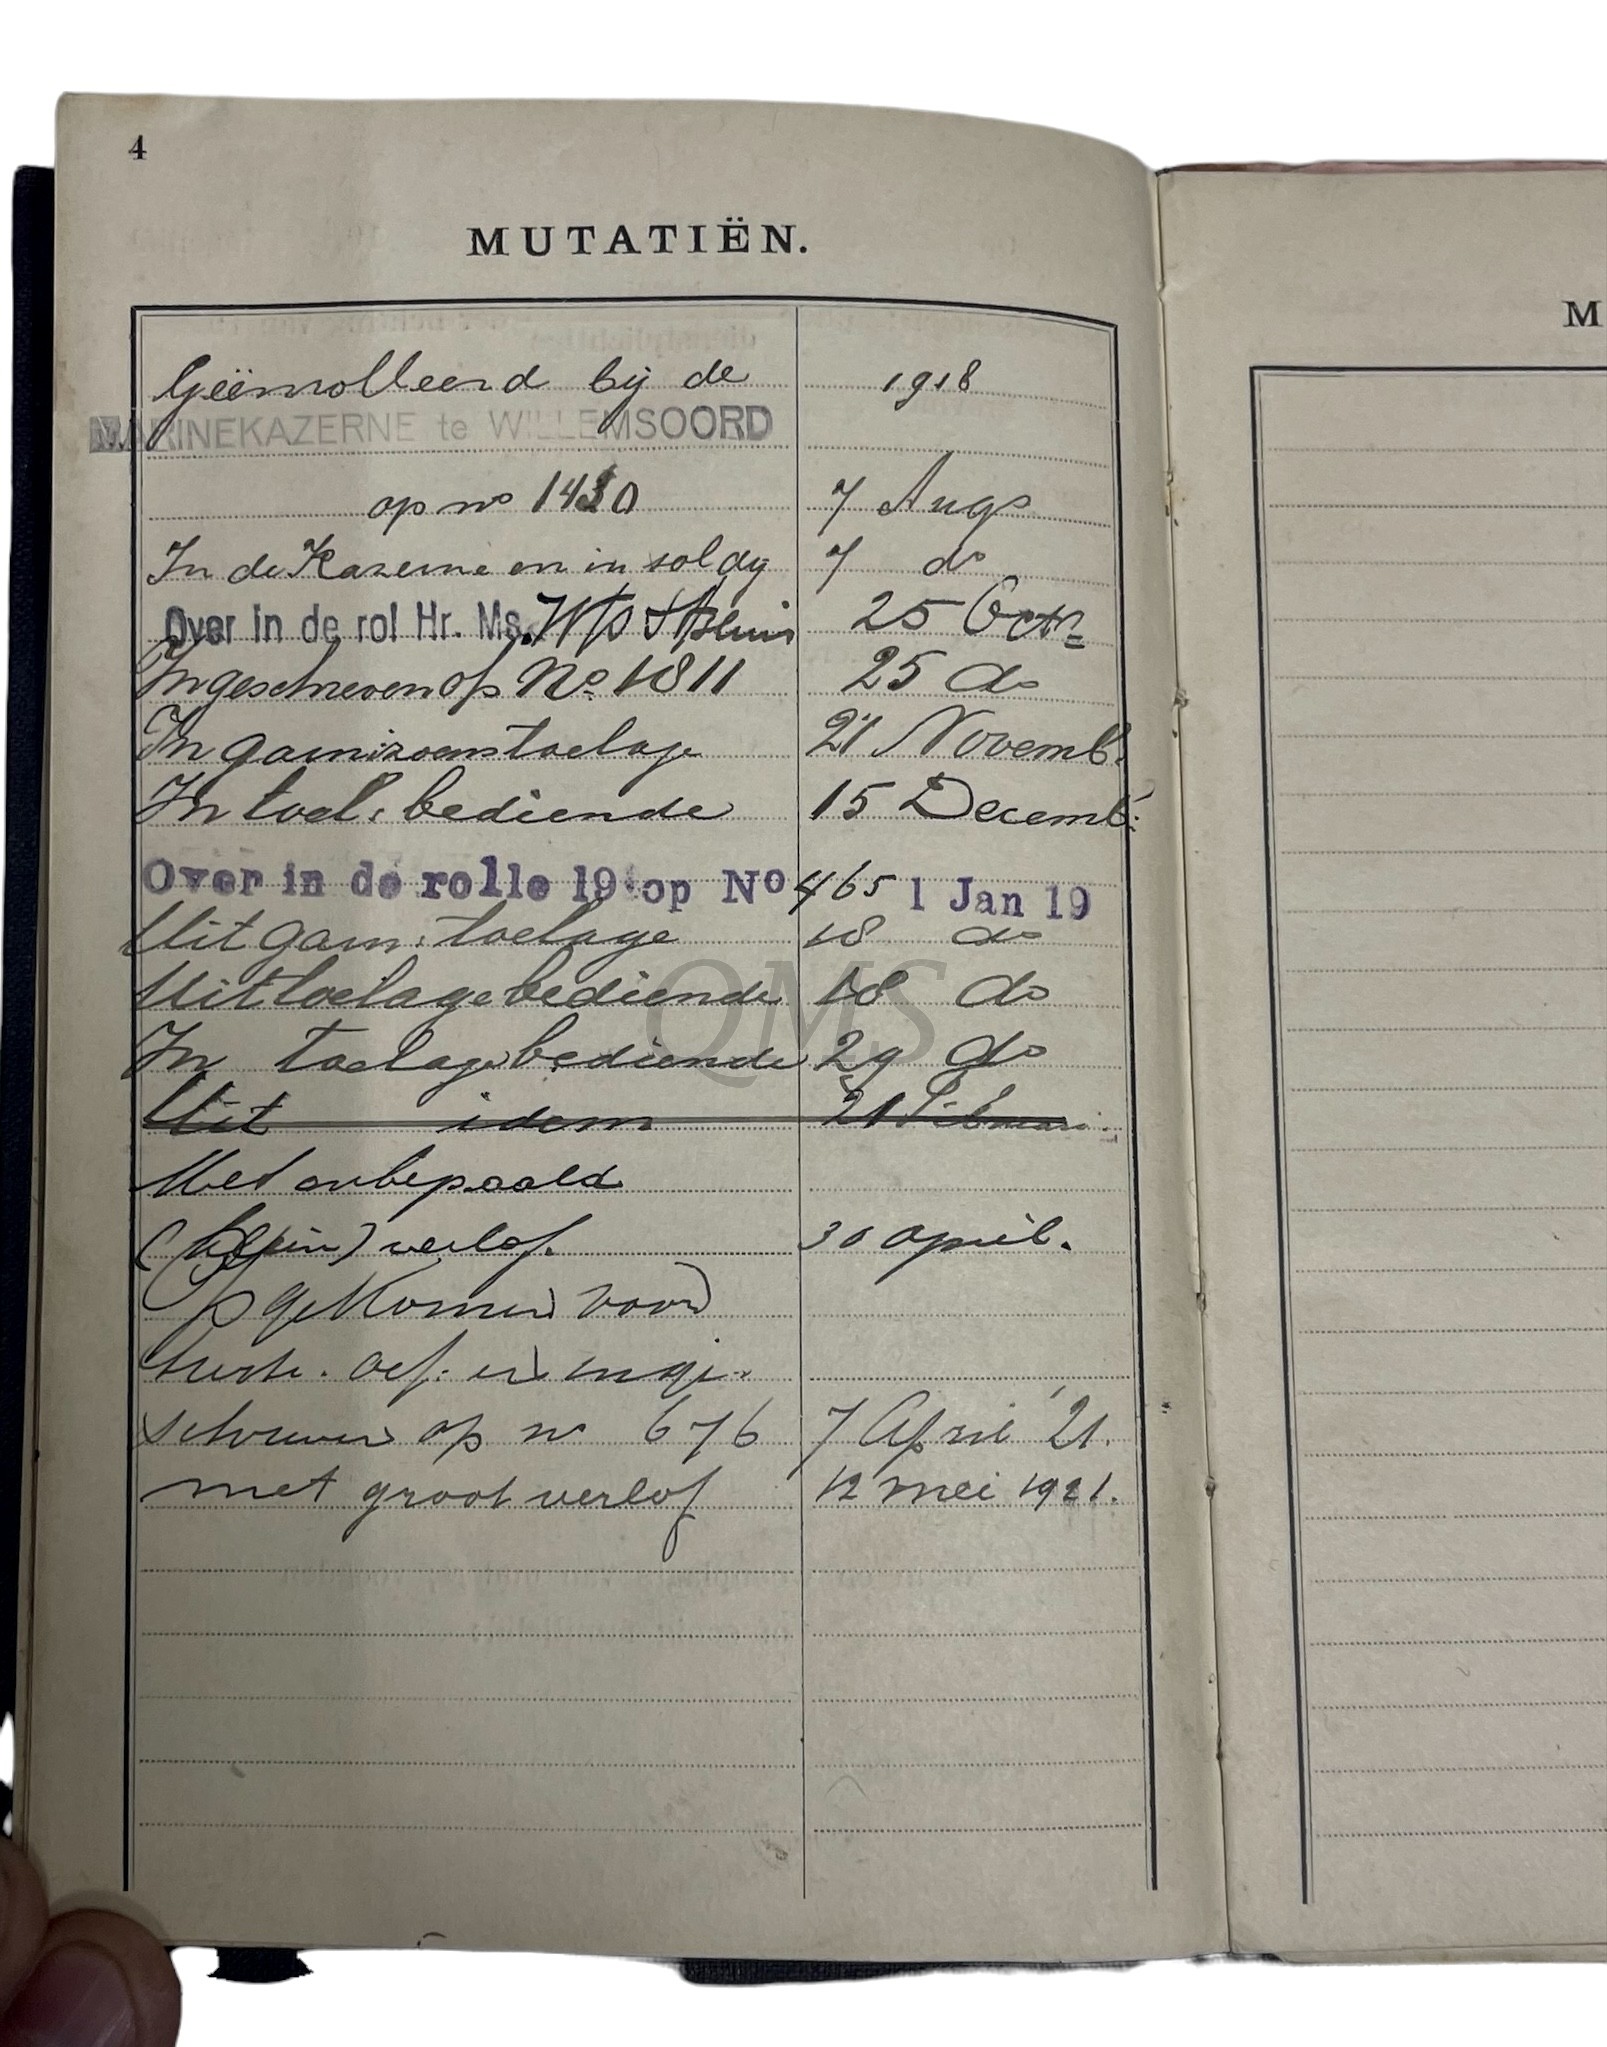 4
MUTATIËN.
M
Geënrolleerd bij de 1918
MARINEKAZERNE te WILLEMSOORD
op no 1430 7 Augs
In de Kazerne en in soldij 7 do
Over in de rol Hr. Ms. 25 Octr
Ingeschreven op No 1811 25 do
In garnizoenstoelage 21 Novemb.
In toel. bediende 15 Decemb.
Over in de rolle 19 op No 465 1 Jan 19
Uit garn. toelage 18 do
Uit toelage bediende 18 do
QMS
In toelage bediende 29 do
Uit idem 21 Februari
Met onbepaald
(klein) verlof. 30 april.
Opgekomen voor
herh. oef. en inge-
schreven op no 676 7 April '21.
met groot verlof 12 mei 1921.